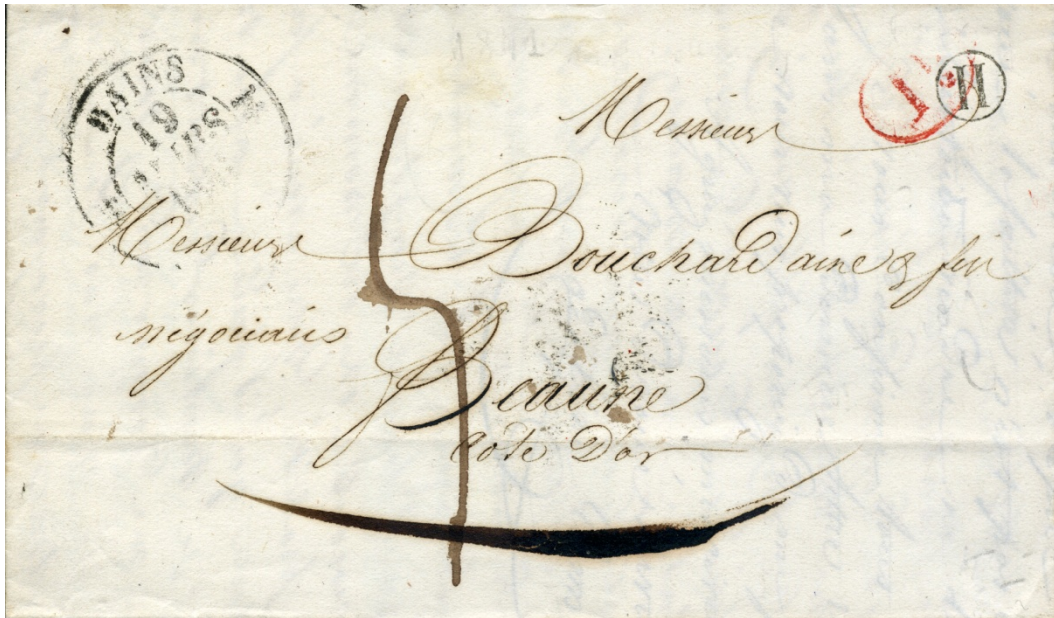 BAINS
19
MARS
1 D
H
Messieurs
Messieurs Bouchard ainé & fils
négocians
Beaune
Cote D'or